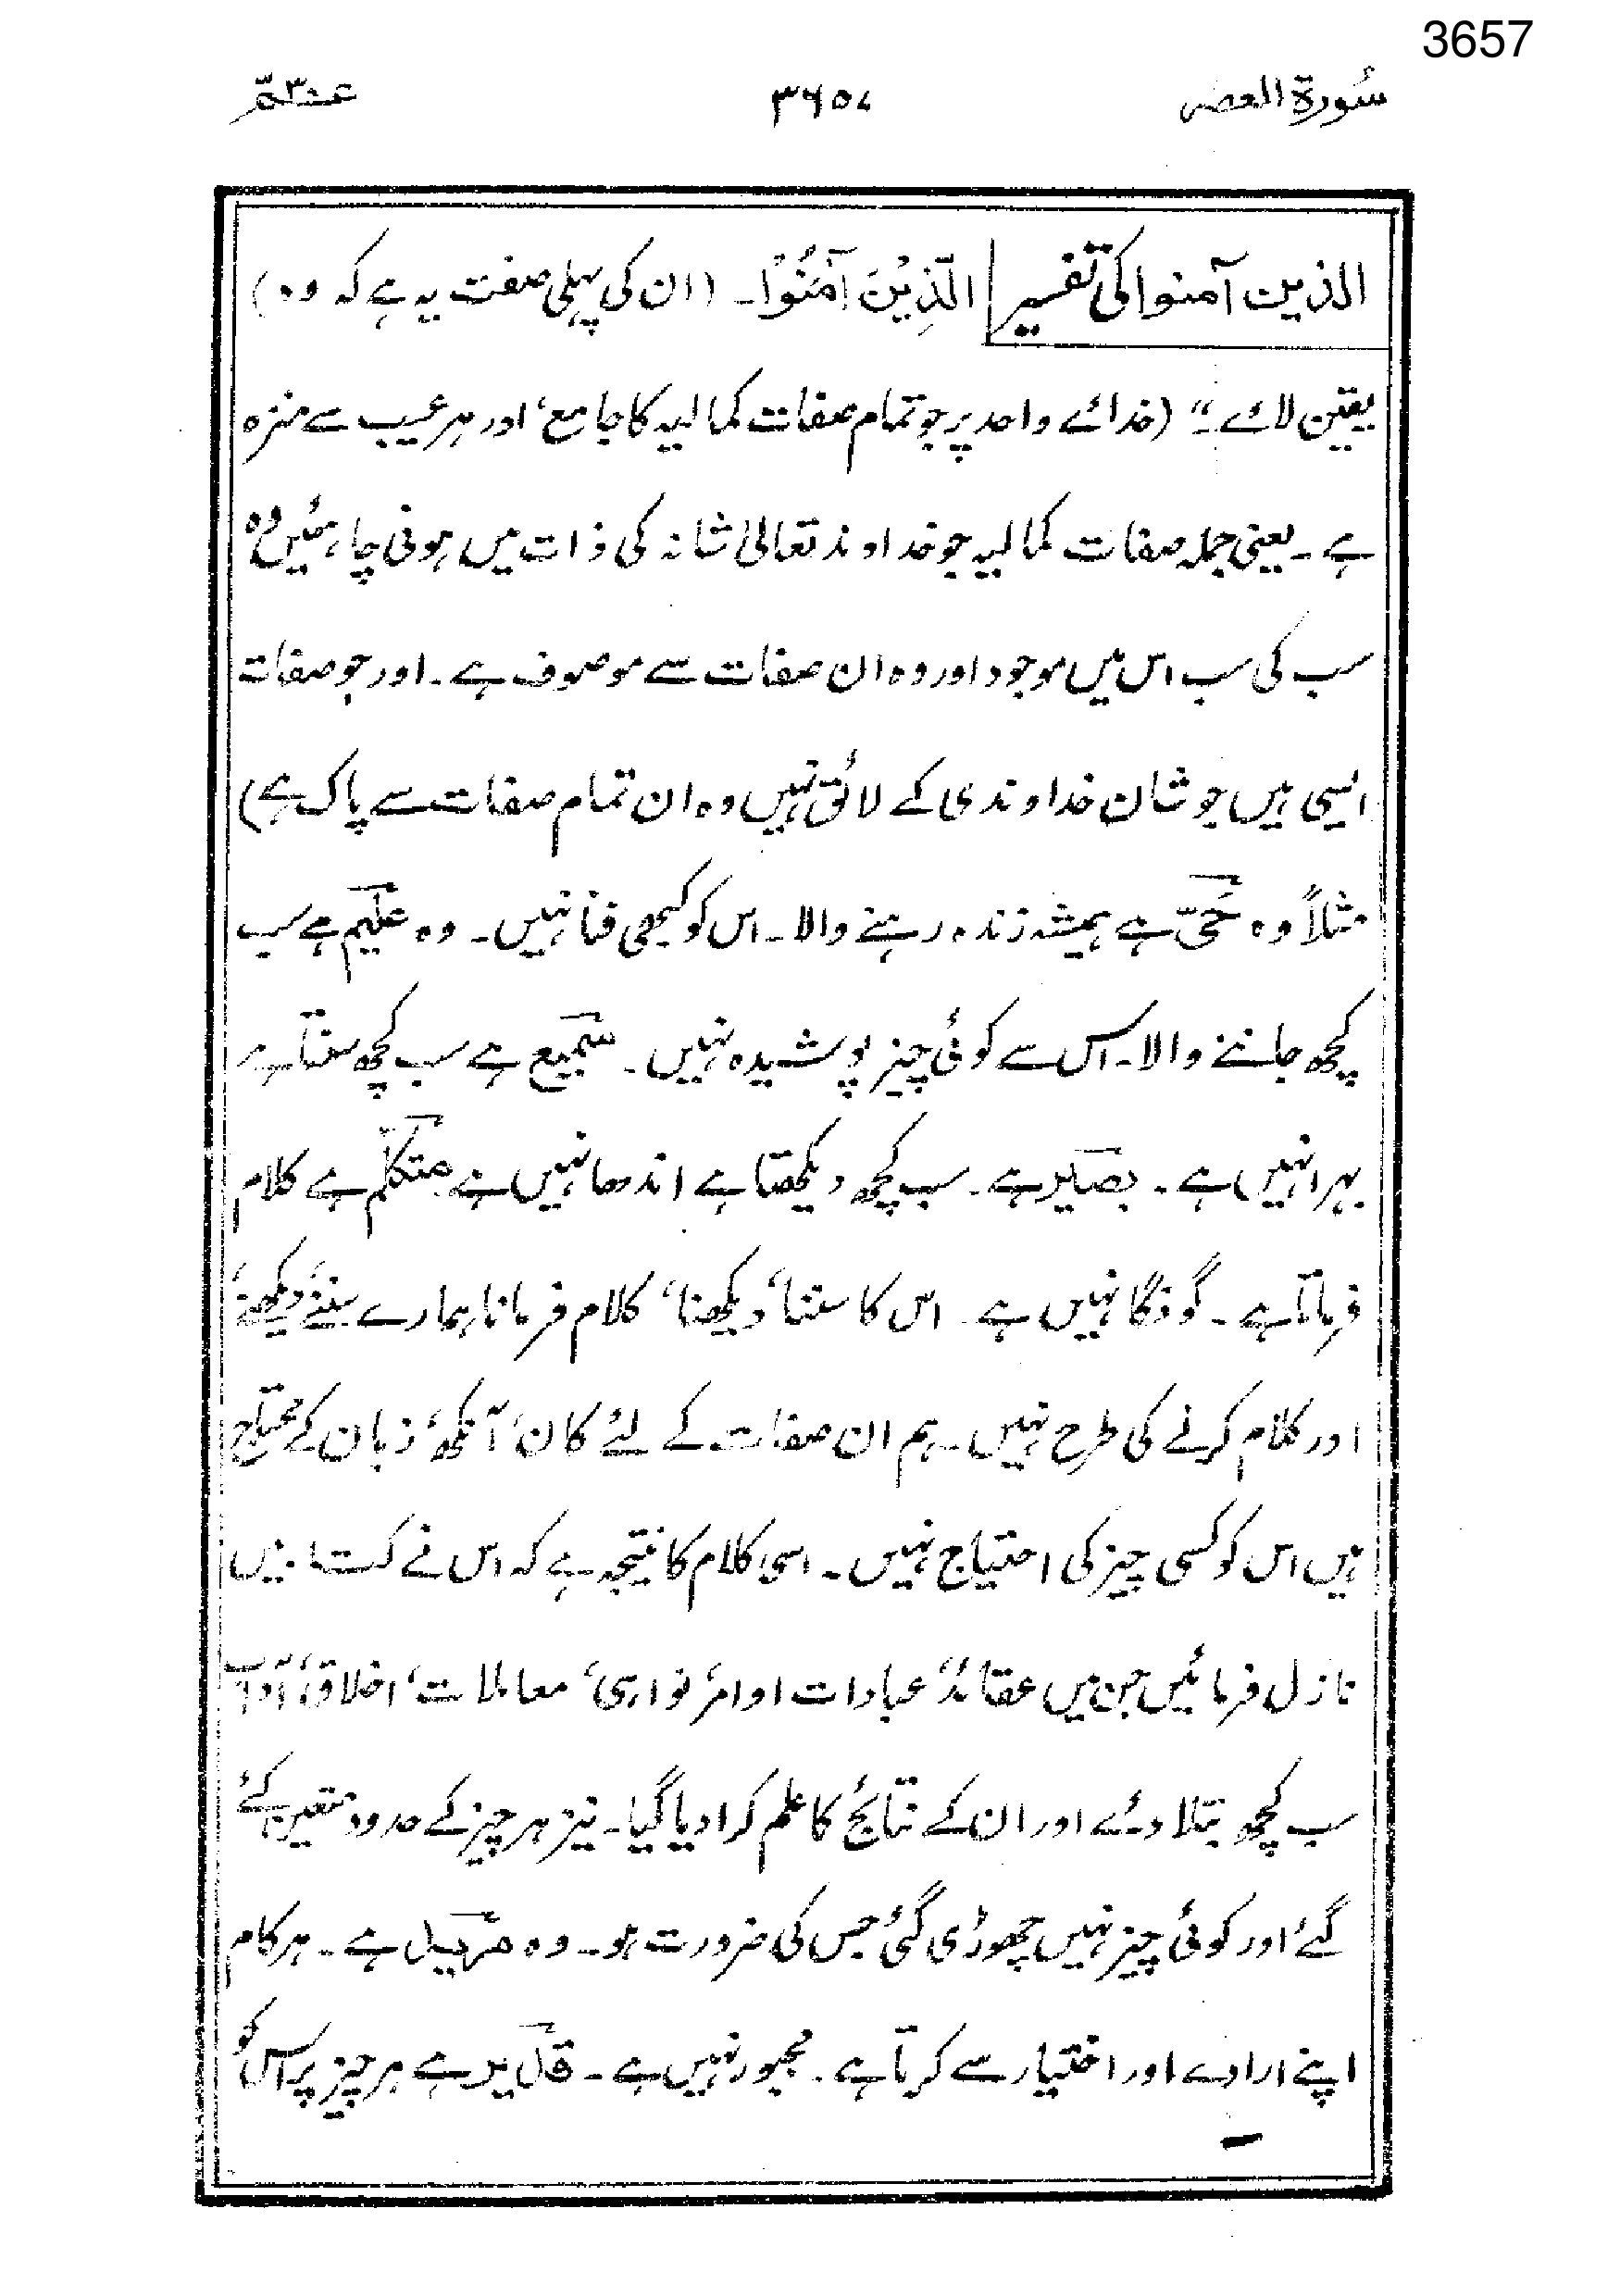 3657
سُورة العصر ۳۶۵۷ عـــمّ ۳۰
الذین آمنوا کی تفسیر الَّذِیْنَ آمَنُوْا۔ (ان کی پہلی صفت یہ ہے کہ وہ)
یقین لائے۔" (خدائے واحد پر جو تمام صفات کمالیہ کا جامع، اور ہر عیب سے منزہ
ہے۔ یعنی جملہ صفات کمالیہ جو خداوند تعالیٰ شانہ کی ذات میں ہونی چاہئیں وہ
سب کی سب اس میں موجود اور وہ ان صفات سے موصوف ہے۔ اور جو صفات
ایسی ہیں جو شان خداوندی کے لائق نہیں وہ ان تمام صفات سے پاک ہے)
مثلاً وہ حَیّ ہے ہمیشہ زندہ رہنے والا۔ اس کو کبھی فنا نہیں۔ وہ علیم ہے سب
کچھ جاننے والا۔ اس سے کوئی چیز پوشیدہ نہیں۔ سمیع ہے سب کچھ سنتا ہے
بہرا نہیں ہے۔ بصیر ہے۔ سب کچھ دیکھتا ہے اندھا نہیں ہے۔ متکلّم ہے کلام
فرماتا ہے۔ گونگا نہیں ہے۔ اس کا سننا، دیکھنا، کلام فرمانا ہمارے سننے، دیکھنے،
اور کلام کرنے کی طرح نہیں۔ ہم ان صفات کے لئے کان، آنکھ، زبان کے محتاج
ہیں اس کو کسی چیز کی احتیاج نہیں۔ اسی کلام کا نتیجہ ہے کہ اس نے کتابیں
نازل فرمائیں جن میں عقائد، عبادات اوامر، نواہی، معاملات، اخلاق، آداب
سب کچھ بتلا دئے اور ان کے نتائج کا علم کرا دیا گیا۔ نیز ہر چیز کے حدود متعین کئے
گئے اور کوئی چیز نہیں چھوڑی گئی جس کی ضرورت ہو۔ وہ مرید ہے۔ ہر کام
اپنے ارادے اور اختیار سے کرتا ہے۔ مجبور نہیں ہے۔ قدیر ہے ہر چیز پر اس کو